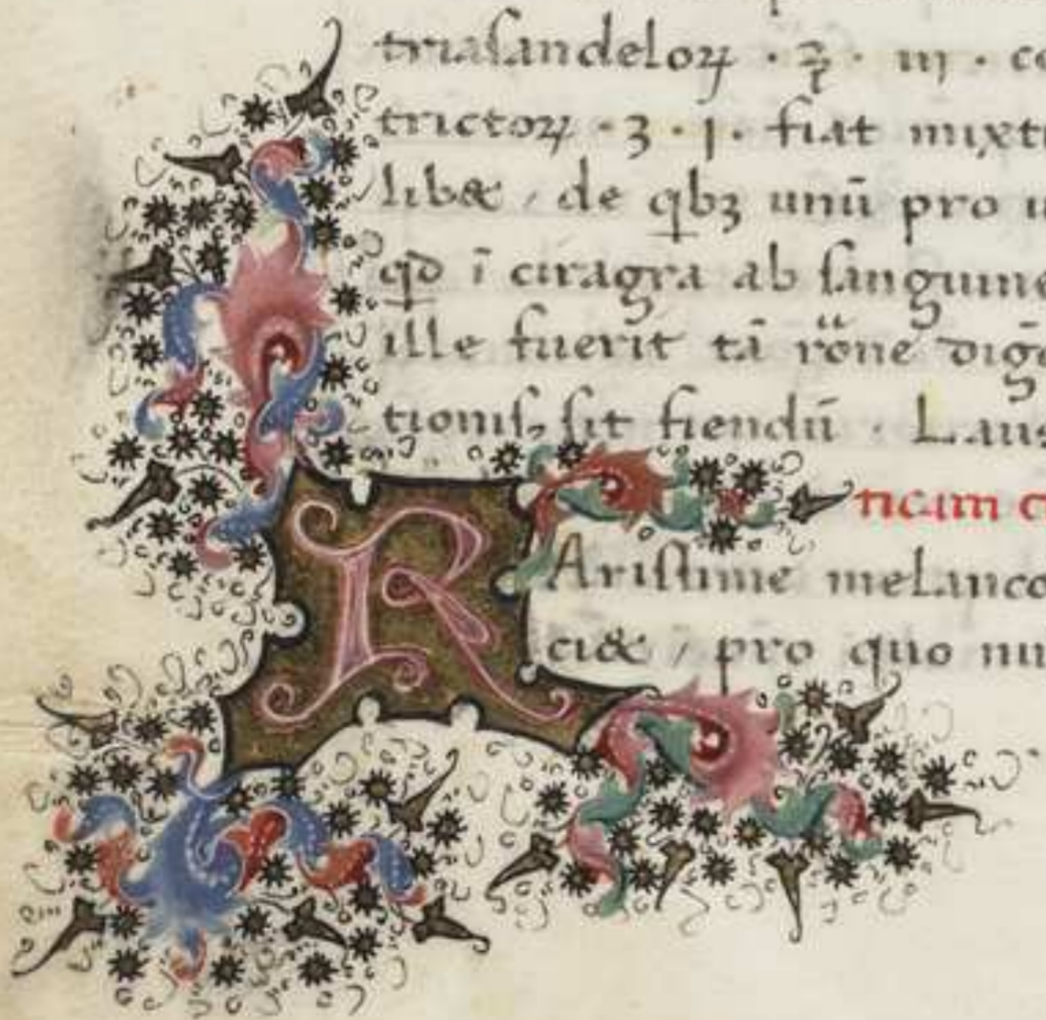 triasandeloꝝ · ℥ · iij · co
trictoꝝ · ʒ · j · fiat mixt
libæ, de qbꝫ unū pro u
qđ ī ciragra ab sanguine
ille fuerit tā rōne dige
tionis, sit fiendū · Laus
ticam c
R Arissime melanco
ciæ, pro quo nu